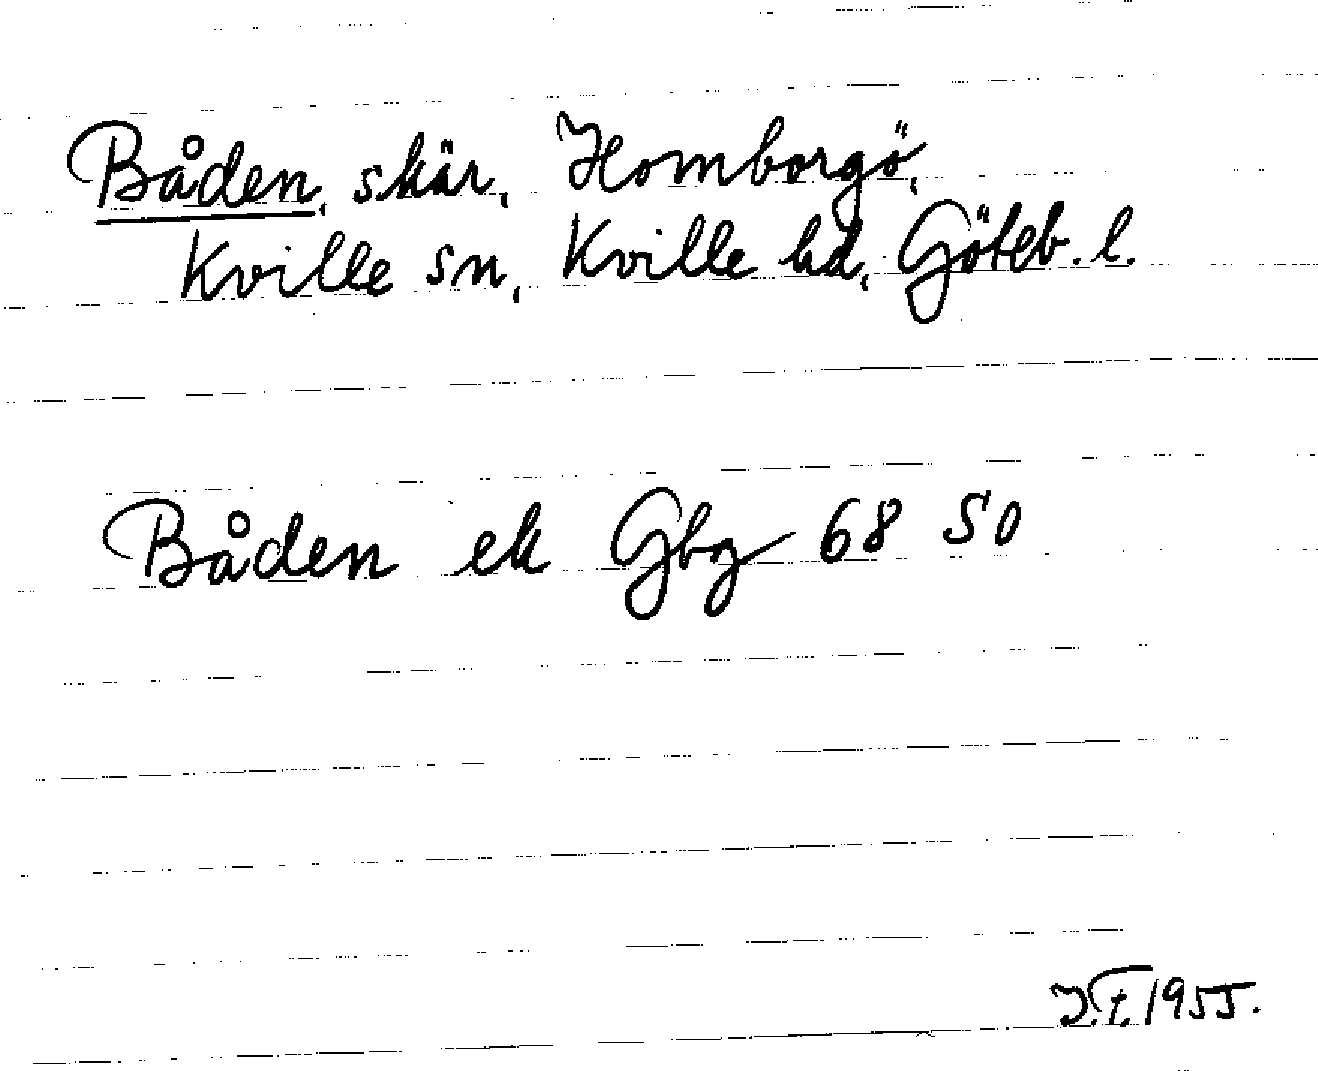 Båden, skär, Homborgö,
Kville sn, Kville hd, Göteb. l.
Båden ek Gbg 68 SO
1955.